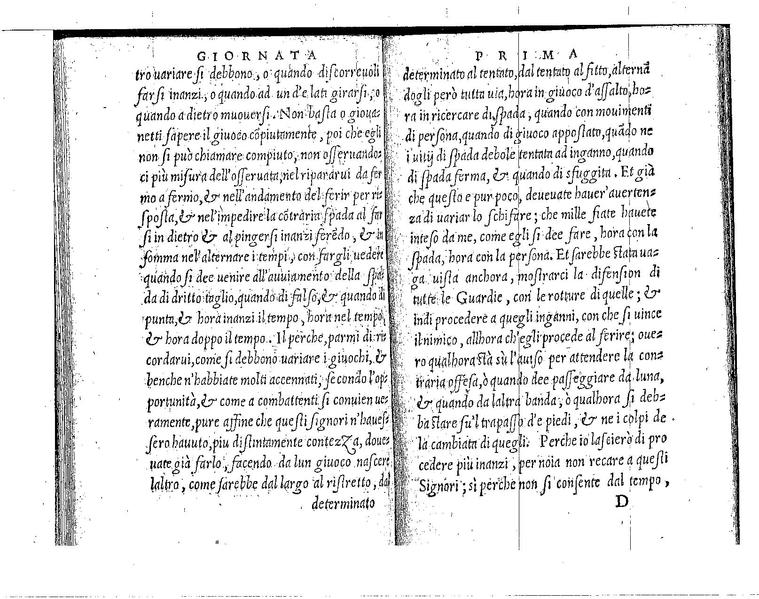 GIORNATA
tro uariare si debbono, o quando discorreuoli
farsi inanzi, o quando ad un d'e lati girarsi, o
quando a dietro muouersi. Non basta o gioua-
netti sapere il giuoco copiutamente, poi che egli
non si può chiamare compiuto, non osseruando-
ci più misura dell'osseruata, nel ripararui da fer
mo a fermo, & nell'andamento del ferir per ri
sposta, & nel'impedire la cōtraria spada al far
si in dietro & al pingersi inanzi ferēdo, & in
somma nel'alternare i tempi, con fargli uedere
quando si dee uenire all'auuiamento della spa
da di dritto taglio, quando di falso, & quando di
punta, & hora inanzi il tempo, hora nel tempo,
& hora doppo il tempo. Il perche, parmi di ri
cordarui, come si debbono uariare i giuochi, &
benche n'habbiate molti accennati, secondo l'op
portunità, & come a combattenti si conuien ue-
ramente, pure affine che questi signori n'haues-
sero hauuto, piu distintamente contezza, doue-
uate già farlo, facendo da lun giuoco nascere
laltro, come sarebbe dal largo al ristretto, dal
determinato
PRIMA
determinato al tentato, dal tentato al fitto, alternā
dogli però tutta uia, hora in giuoco d'assalto, ho-
ra in ricercare di spada, quando con mouimenti
di persona, quando di giuoco appostato, quādo ne
i uitij di spada debole tentata ad inganno, quando
di spada ferma, & quando di sfuggita. Et già
che questo e pur poco, deueuate hauer'auerten-
za di uariar lo schifare; che mille fiate hauete
inteso da me, come egli si dee fare, hora con la
spada, hora con la persona. Et sarebbe stata ua-
ga uista anchora, mostrarci la difension di
tutte le Guardie, con le rotture di quelle; &
indi procedere a quegli inganni, con che si uince
il nimico, allhora ch'egli procede al ferire; oue-
ro qualhora stà sù l'auiso per attendere la con-
traria offesa, ò quando dee passeggiare da luna,
& quando da laltra banda, ò qualhora si deb-
ba stare su'l trapasso d'e piedi, & ne i colpi de
la cambiata di quegli. Perche io lascierò di pro
cedere più inanzi, per noia non recare a questi
Signori; sì perche non si consente dal tempo,
D